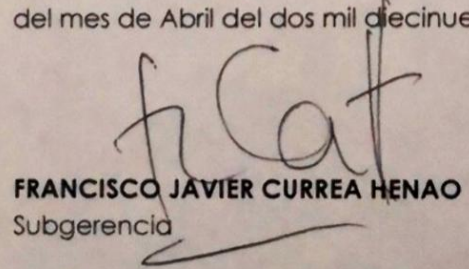 del mes de Abril del dos mil diecinue
FRANCISCO JAVIER CURREA HENAO
Subgerencia